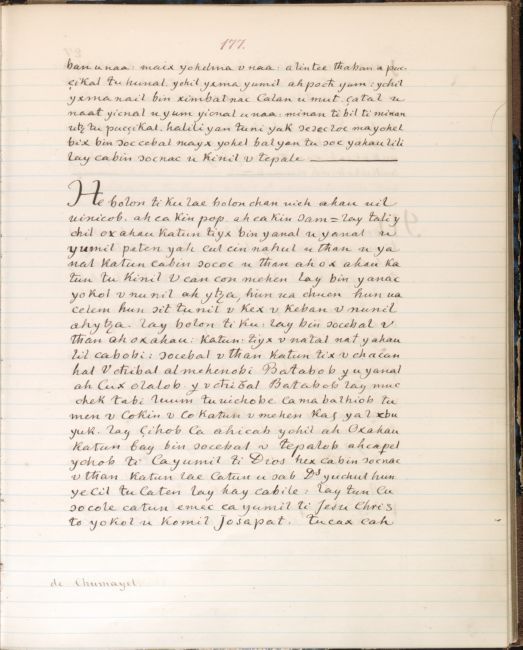 177.
ban u naa: maix yohelma v naa: alintee thaban a puc
çikal tu hunal. yohil yxma yumil ah poch yum: yohil
yxma nail bin ximbat nac calan u mut. çatal u
naat yional u yum yional u naa: minan ti bil ti minan
utz tu pucçikal. halili yan tuni yak
bix bin soc cobal mayx yohel balyan tu soc yahau lili
lay cabin socnac u Kinil v tepale
He bolon ti Ku lae bolon chan uich ahau uil
uinicob. ah ca Kin pop. ah ca Kin Sam = lay tali y
chil oxahau Katun tiyx bin yanal u yanal u
yumil peten yah cul cin nahul u than u ya
nal Katun cabin sococ u than ah ox ahau Ka
tun tu Kinil V can con mehen lay bin yanac
yokol v nunil ah ytza, hun ua chuen hun ua
celem hun sit tu nil v Kex v Keban v nunil
ahytza. lay bolon ti Ku: lay bin socebal v
than ah oxahau: Katun: tiyx v natal nat yahau
lil cabobi: socebal v than Katun tix v chacan
hal Votzibal almehenobi Batabob y u yanal
ah Cux olalob. y votzibal Batabob lay muc
chek tabi luum tu uichobe Camabalhiob tu
men v Cokin v Co Katun v mehen Kaş yal xbu
yuk. lay Cihob Ca ahicab yohil ah Oxahau
Katun bay bin socebal v tepalob ahcapel
yohob ti Cayumil ti Dios hex cabin socnac
v than Katun lae Catun u sab Ds yuchul hun
yecil tu Caten lay hay cabile: lay tun Cu
socole catun emec ca yumil ti Jesu Chris
to yokol u Komil Josapat. tucax cah
de Chumayel.